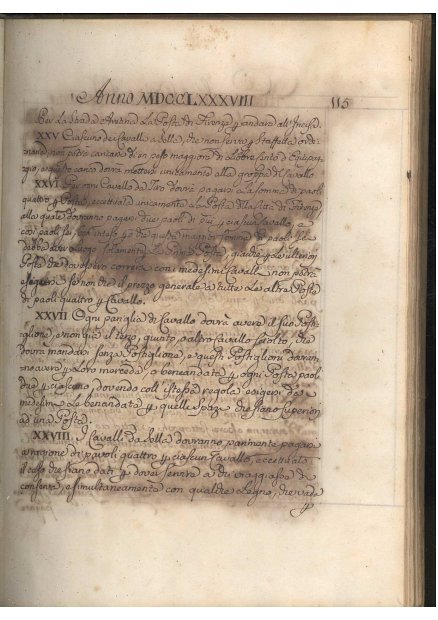 Anno MDCCLXXXVIII 115
Per La Strada Aretina La Posta di Firenze p andare all' Incisa.
XXV Ciascuno dei Cavalli a Sella, che non servono p Staffetta ordi-
naria, non potrà caricarsi di un peso maggiore di Libbre Cento d'Equipag-
gio, e questo carico dovrà mettersi unicamente alla groppa del Cavallo
XXVI Per ogni Cavallo da Tiro dovrà pagarsi la somma di paoli
quattro p Posta, eccettuata unicamente la Posta della Città di Firenze
alla quale dovranno pagarsi due paoli di più p ciascun Cavallo, e
così paoli sei, ben inteso p che questa maggior somma di paoli sei
debba aver luogo solamente La Prima Posta, giacchè p Le ulteriori
Poste che dovessero correrci con i medesimi Cavalli non potrà
esigersi se non che il prezzo generale a tutte Le altre Poste
di paoli quattro p Cavallo.
XXVII Ogni pariglia di Cavallo dovrà avere il suo Posti-
glione, e non già il terzo, quinto, o altro Cavallo sciolto, che
dovrà mandarsi senza Postiglione, e questi Postiglioni dovran-
no avere p Loro mercede o benandata p ogni Posta paoli
due p ciascuno, dovendo coll' istessa regola esigersi da
medesimi la benandata p quelle che siano superiori
ad una Posta
XXVIII I Cavalli da Sella dovranno parimente pagarsi
a ragione di pavoli quattro p ciascun Cavallo, eccettuato
il caso che siano dati p dover servire a dei viaggiatori di
conserva, e simultaneamente con qualche Legno, che vada
p